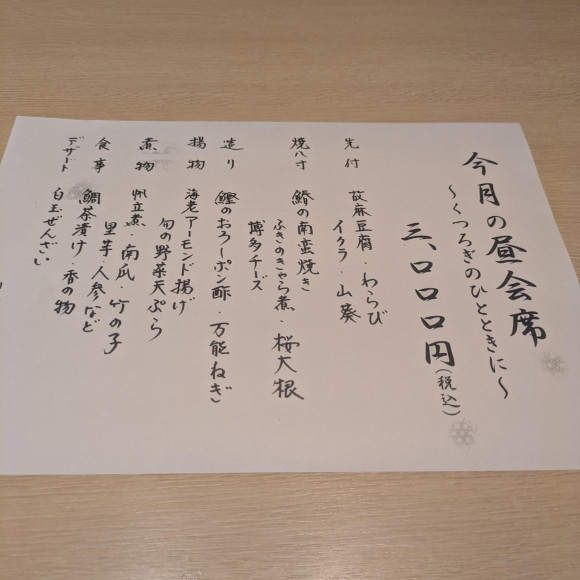 今月の昼会席
～くつろぎのひとときに～
三、〇〇〇円(税込)
先付 故麻豆腐・わらび
イクラ・山葵
焼八寸 鰆の南蛮焼き
ふきのきゃら煮・桜大根
博多チーズ
造り 鰹のおろしポン酢・万能ねぎ
揚物 海老アーモンド揚げ
旬の野菜天ぷら
煮物 帆立煮・南瓜・竹の子
里芋・人参など
食事 鯛茶漬け・香の物
デザート 白玉ぜんざい